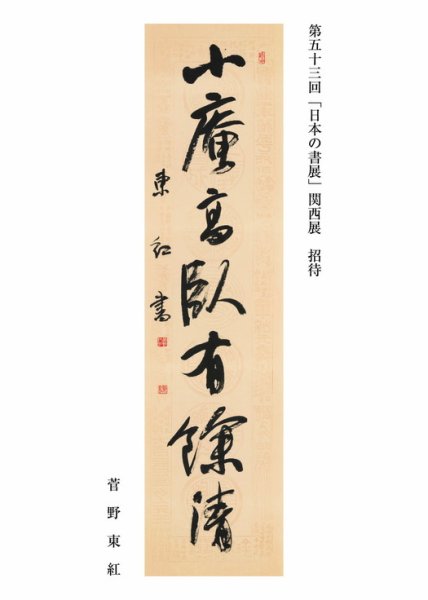 第五十三回「日本の書展」関西展　招待
小庵高臥有餘清
東紅書
菅野東紅